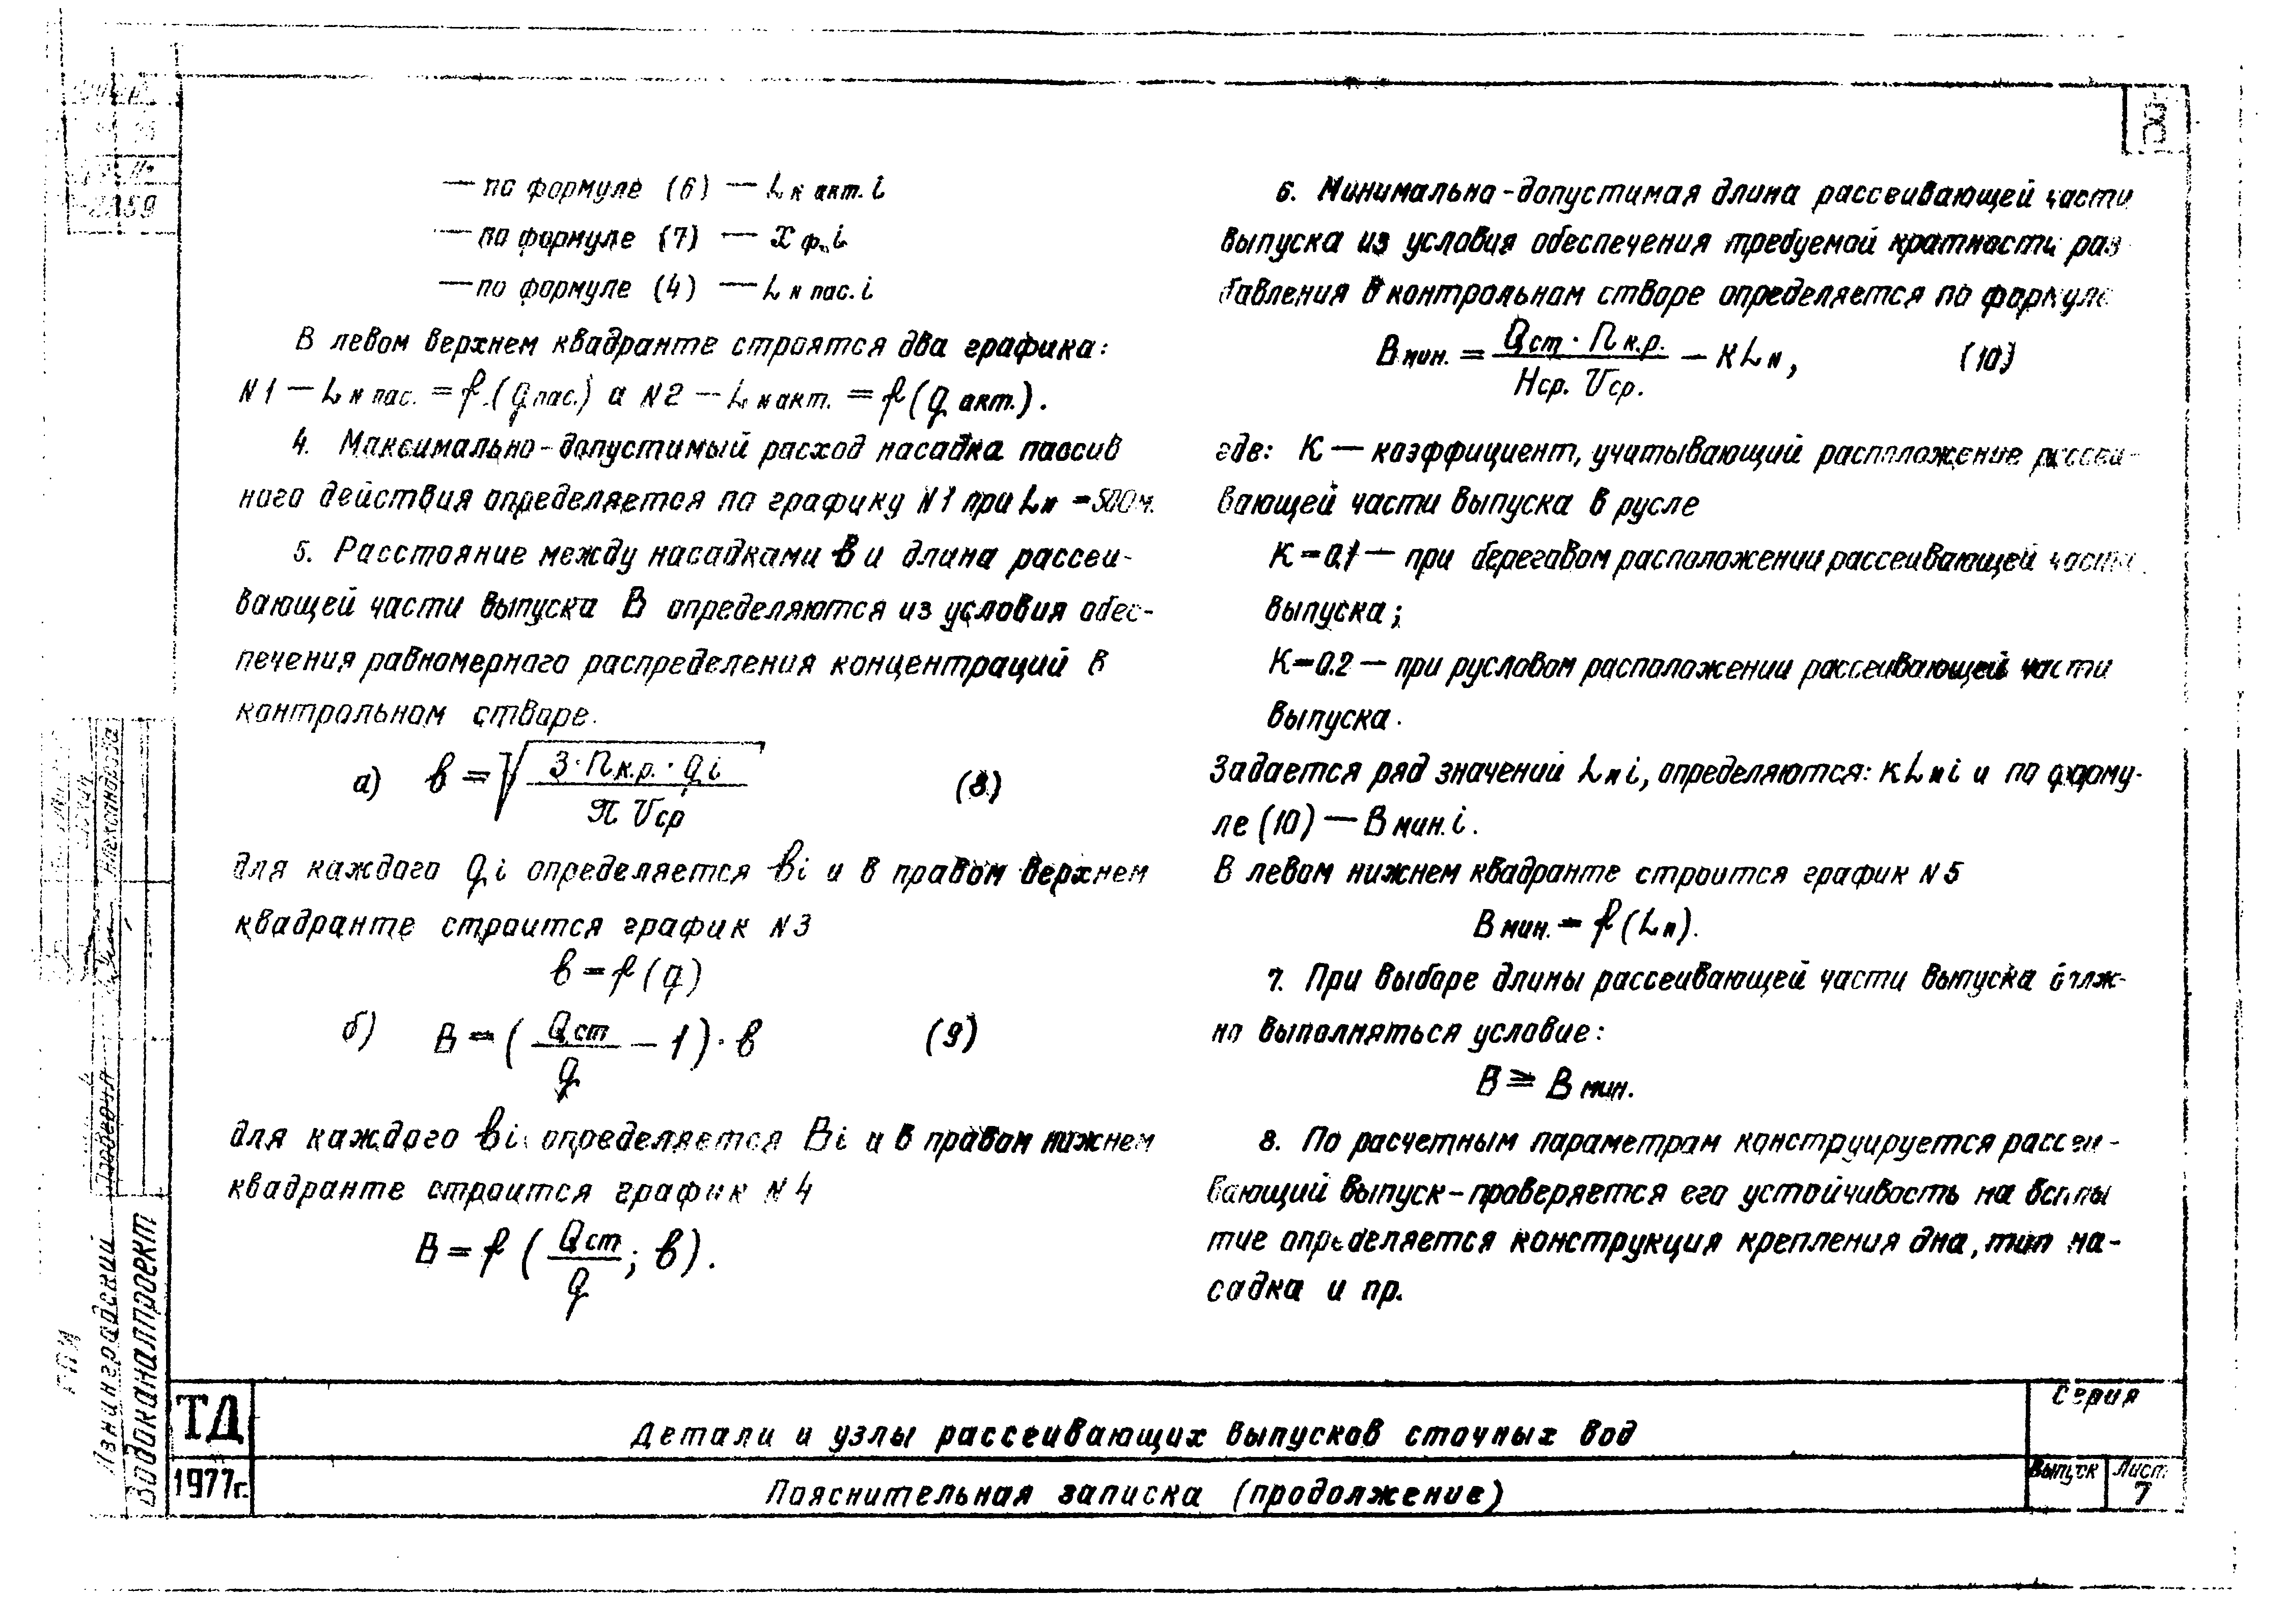 — по формуле (6) — Lн акт. i
— по формуле (7) — Xф. i
— по формуле (4) — Lн пас. i
В левом верхнем квадранте строятся два графика:
N1 — Lн пас. = f (qпас.) а N2 — Lн акт. = f (q акт.).
4. Максимально-допустимый расход насадка пассив
ного действия определяется по графику N1 при Lн = 500м.
5. Расстояние между насадками в и длина рассеи-
вающей части выпуска В определяются из условия обес-
печения равномерного распределения концентраций в
контрольном створе.
а) в = √(3·Пк.р.·qi / π Vср) (8)
для каждого qi определяется вi и в правом верхнем
квадранте строится график N3
в = f (q)
б) В = (Qст / q − 1)·в (9)
для каждого вi определяется Вi и в правом нижнем
квадранте строится график N4
В = f (Qст / q ; в).
6. Минимально-допустимая длина рассеивающей части
выпуска из условия обеспечения требуемой кратности раз
бавления в контрольном створе определяется по формуле
Вмин. = Qст·Пк.р. / Нср. Vср. − КLн, (10)
где: К — коэффициент, учитывающий расположение рассеи-
вающей части выпуска в русле
К = 0.1 — при береговом расположении рассеивающей части
выпуска;
К = 0.2 — при русловом расположении рассеивающей части
выпуска.
Задается ряд значений Lнi, определяются: КLнi и по форму-
ле (10) — Вмин. i.
В левом нижнем квадранте строится график N5
Вмин. = f (Lн).
7. При выборе длины рассеивающей части выпуска долж-
но выполняться условие:
В ⩾ Вмин.
8. По расчетным параметрам конструируется рассеи-
вающий выпуск-проверяется его устойчивость на всплы
тие определяется конструкция крепления дна, тип на-
садка и пр.
ТД
1977г.
Детали и узлы рассеивающих выпусков сточных вод
Пояснительная записка (продолжение)
Серия
Выпуск
Лист
7
Ленинградский
Водоканалпроект
Проверил
Александрова
ГПИ